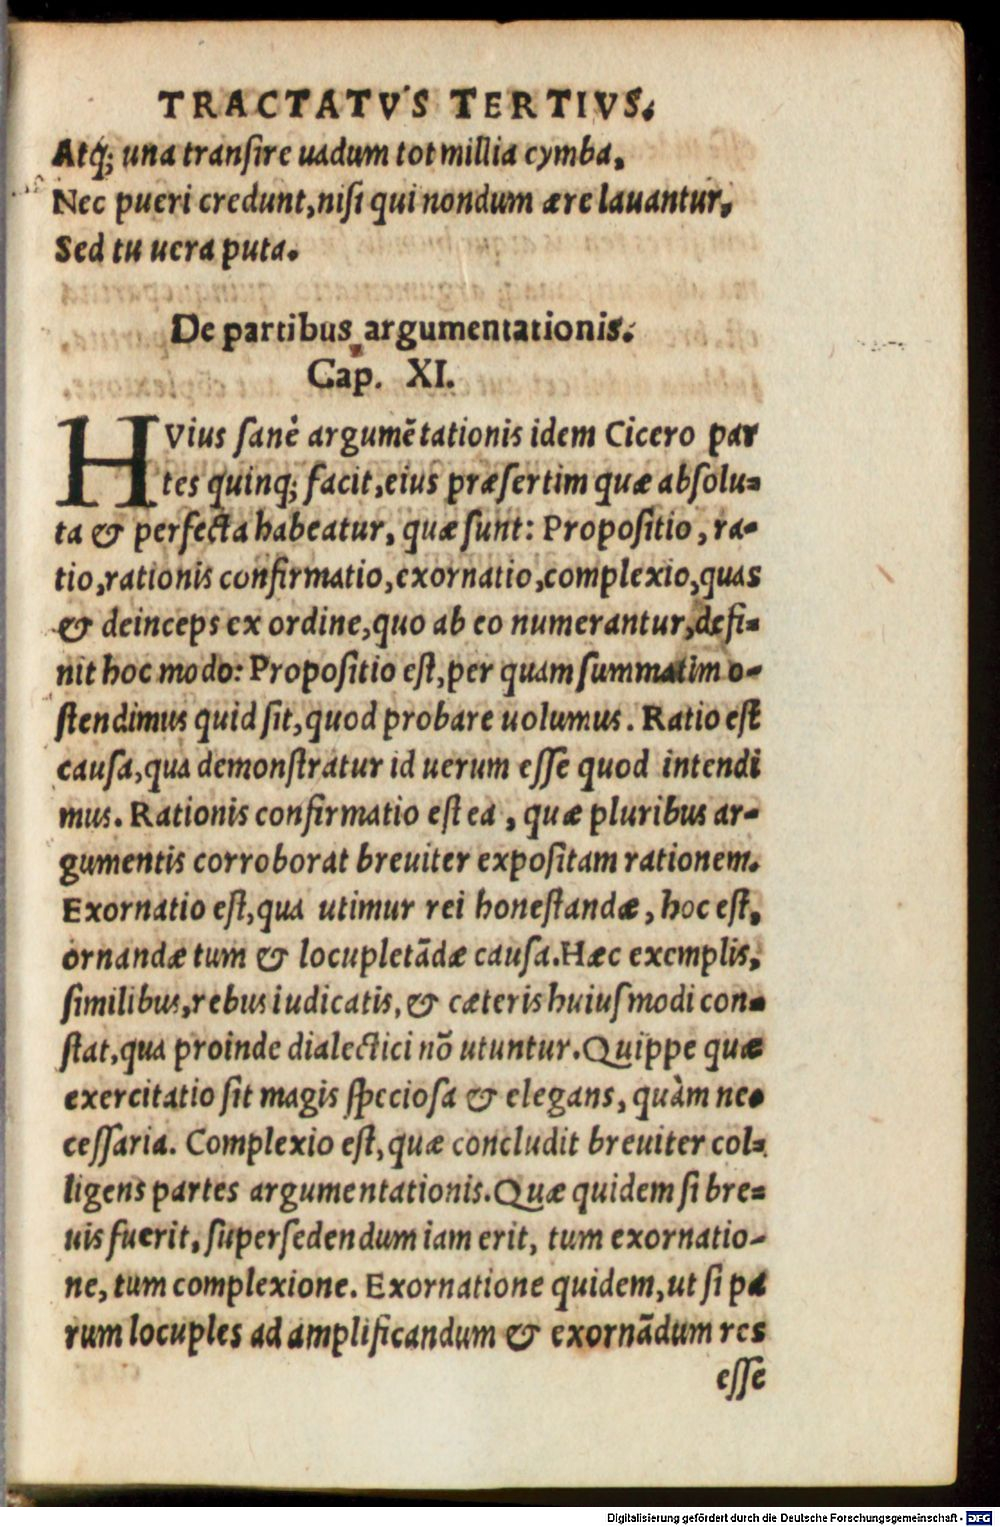 TRACTATVS TERTIVS.
Atq; una transire uadum tot millia cymba,
Nec pueri credunt, nisi qui nondum ære lauantur,
Sed tu uera puta.
De partibus argumentationis.
Cap. XI.
HVius sanè argumẽtationis idem Cicero par
tes quinq; facit, eius præsertim quæ absolu-
ta & perfecta habeatur, quæ sunt: Propositio, ra-
tio, rationis confirmatio, exornatio, complexio, quas
& deinceps ex ordine, quo ab eo numerantur, defi-
nit hoc modo: Propositio est, per quam summatim o-
stendimus quid sit, quod probare uolumus. Ratio est
causa, qua demonstratur id uerum esse quod intendi
mus. Rationis confirmatio est ea, quæ pluribus ar-
gumentis corroborat breuiter expositam rationem.
Exornatio est, qua utimur rei honestandæ, hoc est,
ornandæ tum & locupletãdæ causa. Hæc exemplis,
similibus, rebus iudicatis, & cæteris huiusmodi con-
stat, qua proinde dialectici nõ utuntur. Quippe quæ
exercitatio sit magis speciosa & elegans, quàm ne-
cessaria. Complexio est, quæ concludit breuiter col-
ligens partes argumentationis. Quæ quidem si bre-
uis fuerit, supersedendum iam erit, tum exornatio-
ne, tum complexione. Exornatione quidem, ut si pa
rum locuples ad amplificandum & exornãdum res
esse
Digitalisierung gefördert durch die Deutsche Forschungsgemeinschaft - DFG